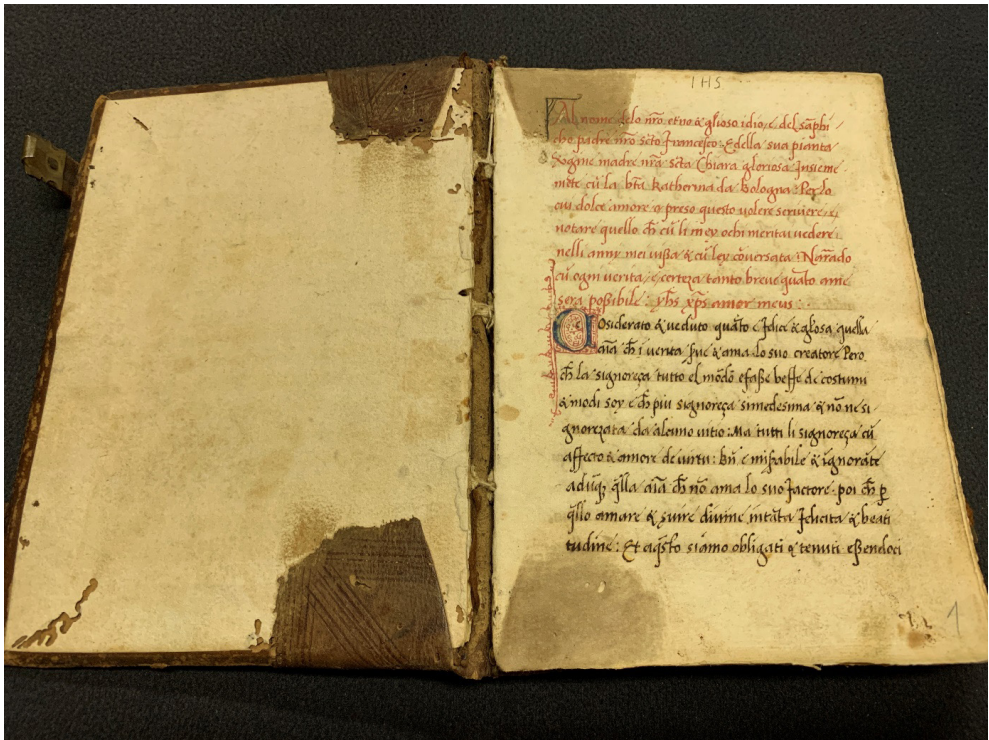 IHS
Al nome delo nr̃o etno & gl̃ioso idio, e del sãphi
cho padre nr̃o scto Francesco. E della sua pianta
Vogine madre nr̃a scta Chiara gloriosa Insieme
mẽte cũ la bt̃a Katherina da Bologna. Per lo
cui dolce amore o preso questo volere scrivere e
notare quello ch̃ cũ li miey ochi meritai vedere
nelli anny mei vissa & cũ ley cõversata. Narrãdo
cũ ogni verita, e certeza tanto breve quãto ame
sera possibile: yh̃s xp̃s amor meus:
COsiderato & veduto quãto e felice & gl̃osa quella
aĩa ch̃ i verita sue & ama lo suo creatore Pero
ch̃ la signoreça tutto el mõdo efasse beffe de costumi
& modi soy e ch̃ piu signoreça simedesima & nõ ne si
gnorezata da alcuno vitio: Ma tutti li signoreça cũ
affecto & amore de virtu: bñ e misabile & ignorãte
aduq̃ q̃lla aĩa ch̃ nõ ama lo suo factore poi ch̃ p
q̃llo amare & suire divine intãta felicita & beati
tudine: Et aq̃sto siamo obligati & tenuti essendoci
1